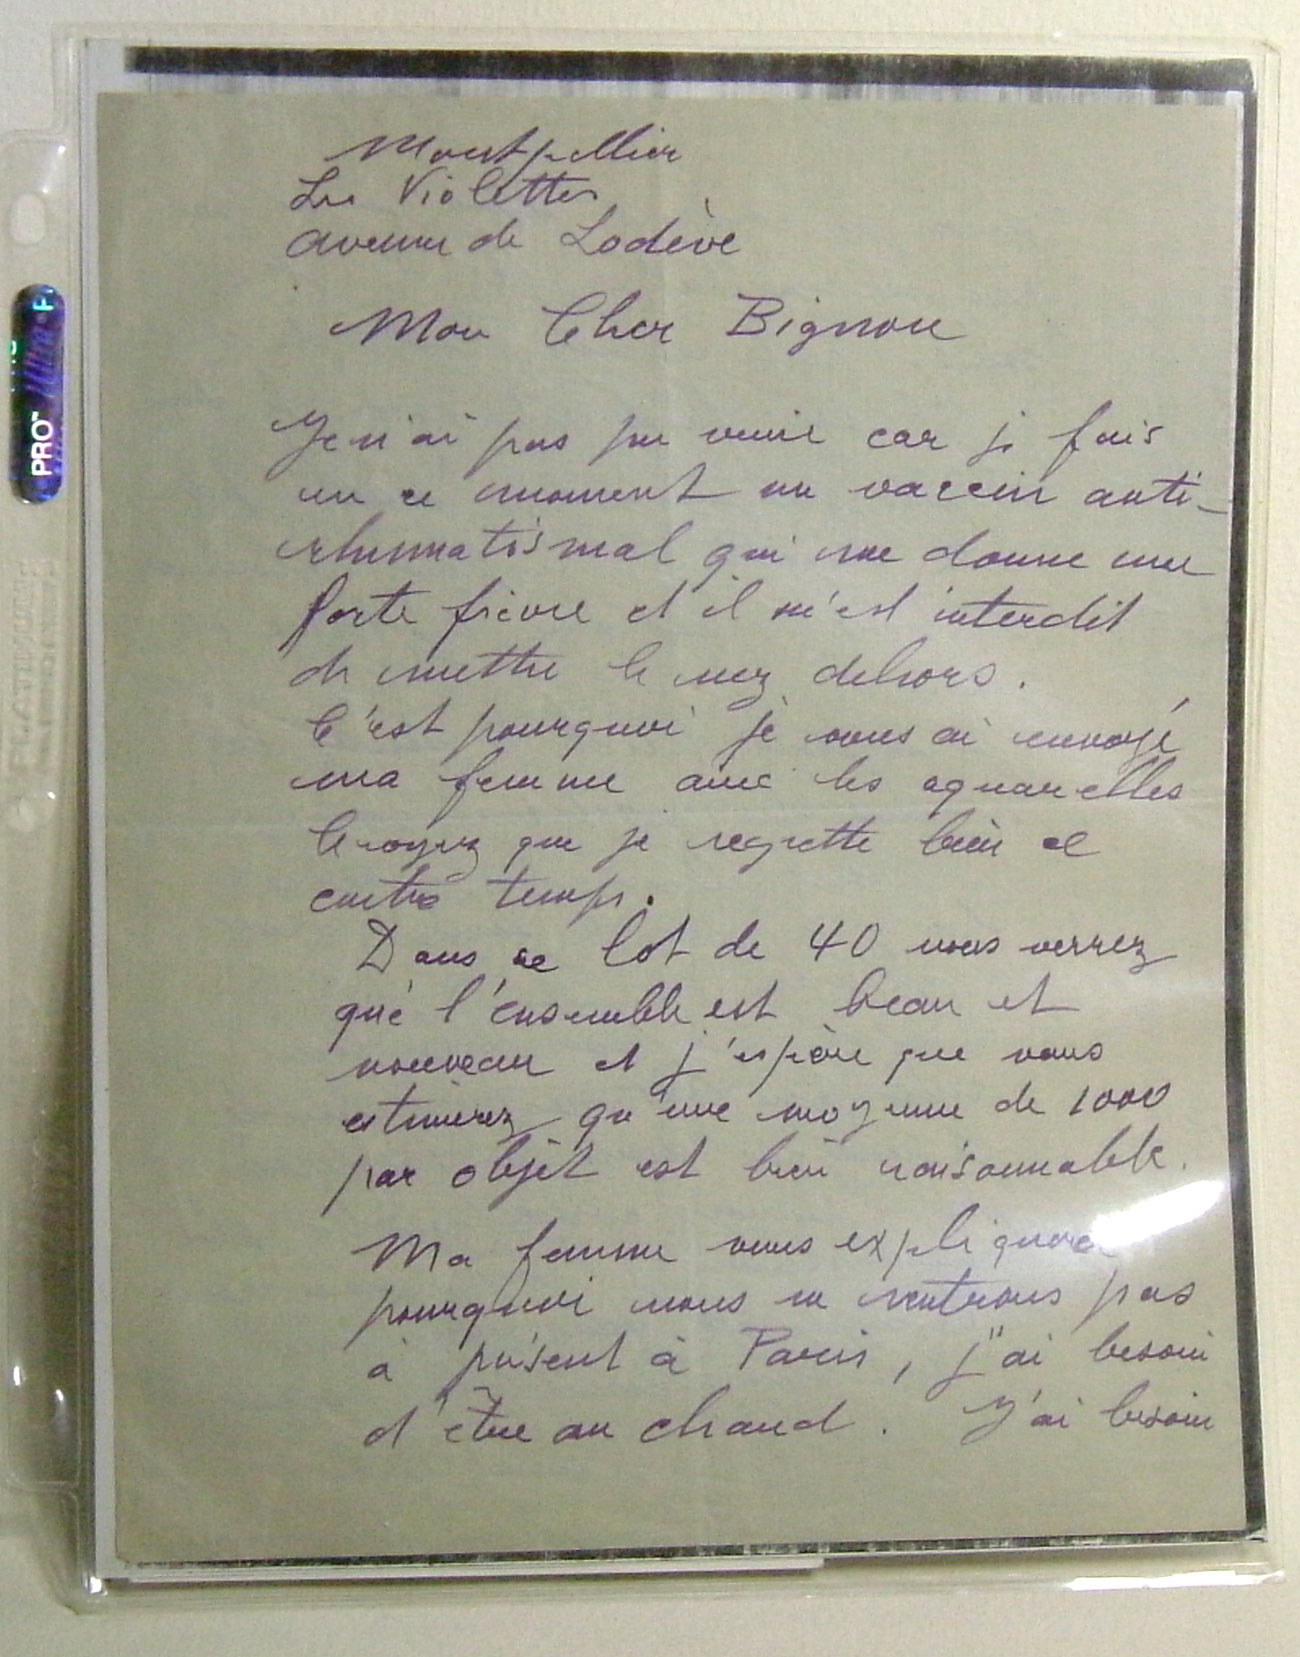 Montpellier
Les Violettes
avenue de Lodève
Mon Cher Bignou
Je n'ai pas pu venir car je fais
en ce moment un vaccin anti-
rhumatismal qui me donne une
forte fièvre et il m'est interdit
de mettre le nez dehors.
C'est pourquoi je vous ai envoyé
ma femme avec les aquarelles
Croyez que je regrette bien ce
contre temps.
Dans ce lot de 40 vous verrez
que l'ensemble est beau et
nouveau et j'espère que vous
estimerez qu'une moyenne de 1000
par objet est bien raisonnable.
Ma femme vous expliquera
pourquoi nous ne rentrons pas
à présent à Paris, j'ai besoin
d'être au chaud. J'ai besoin
PRO